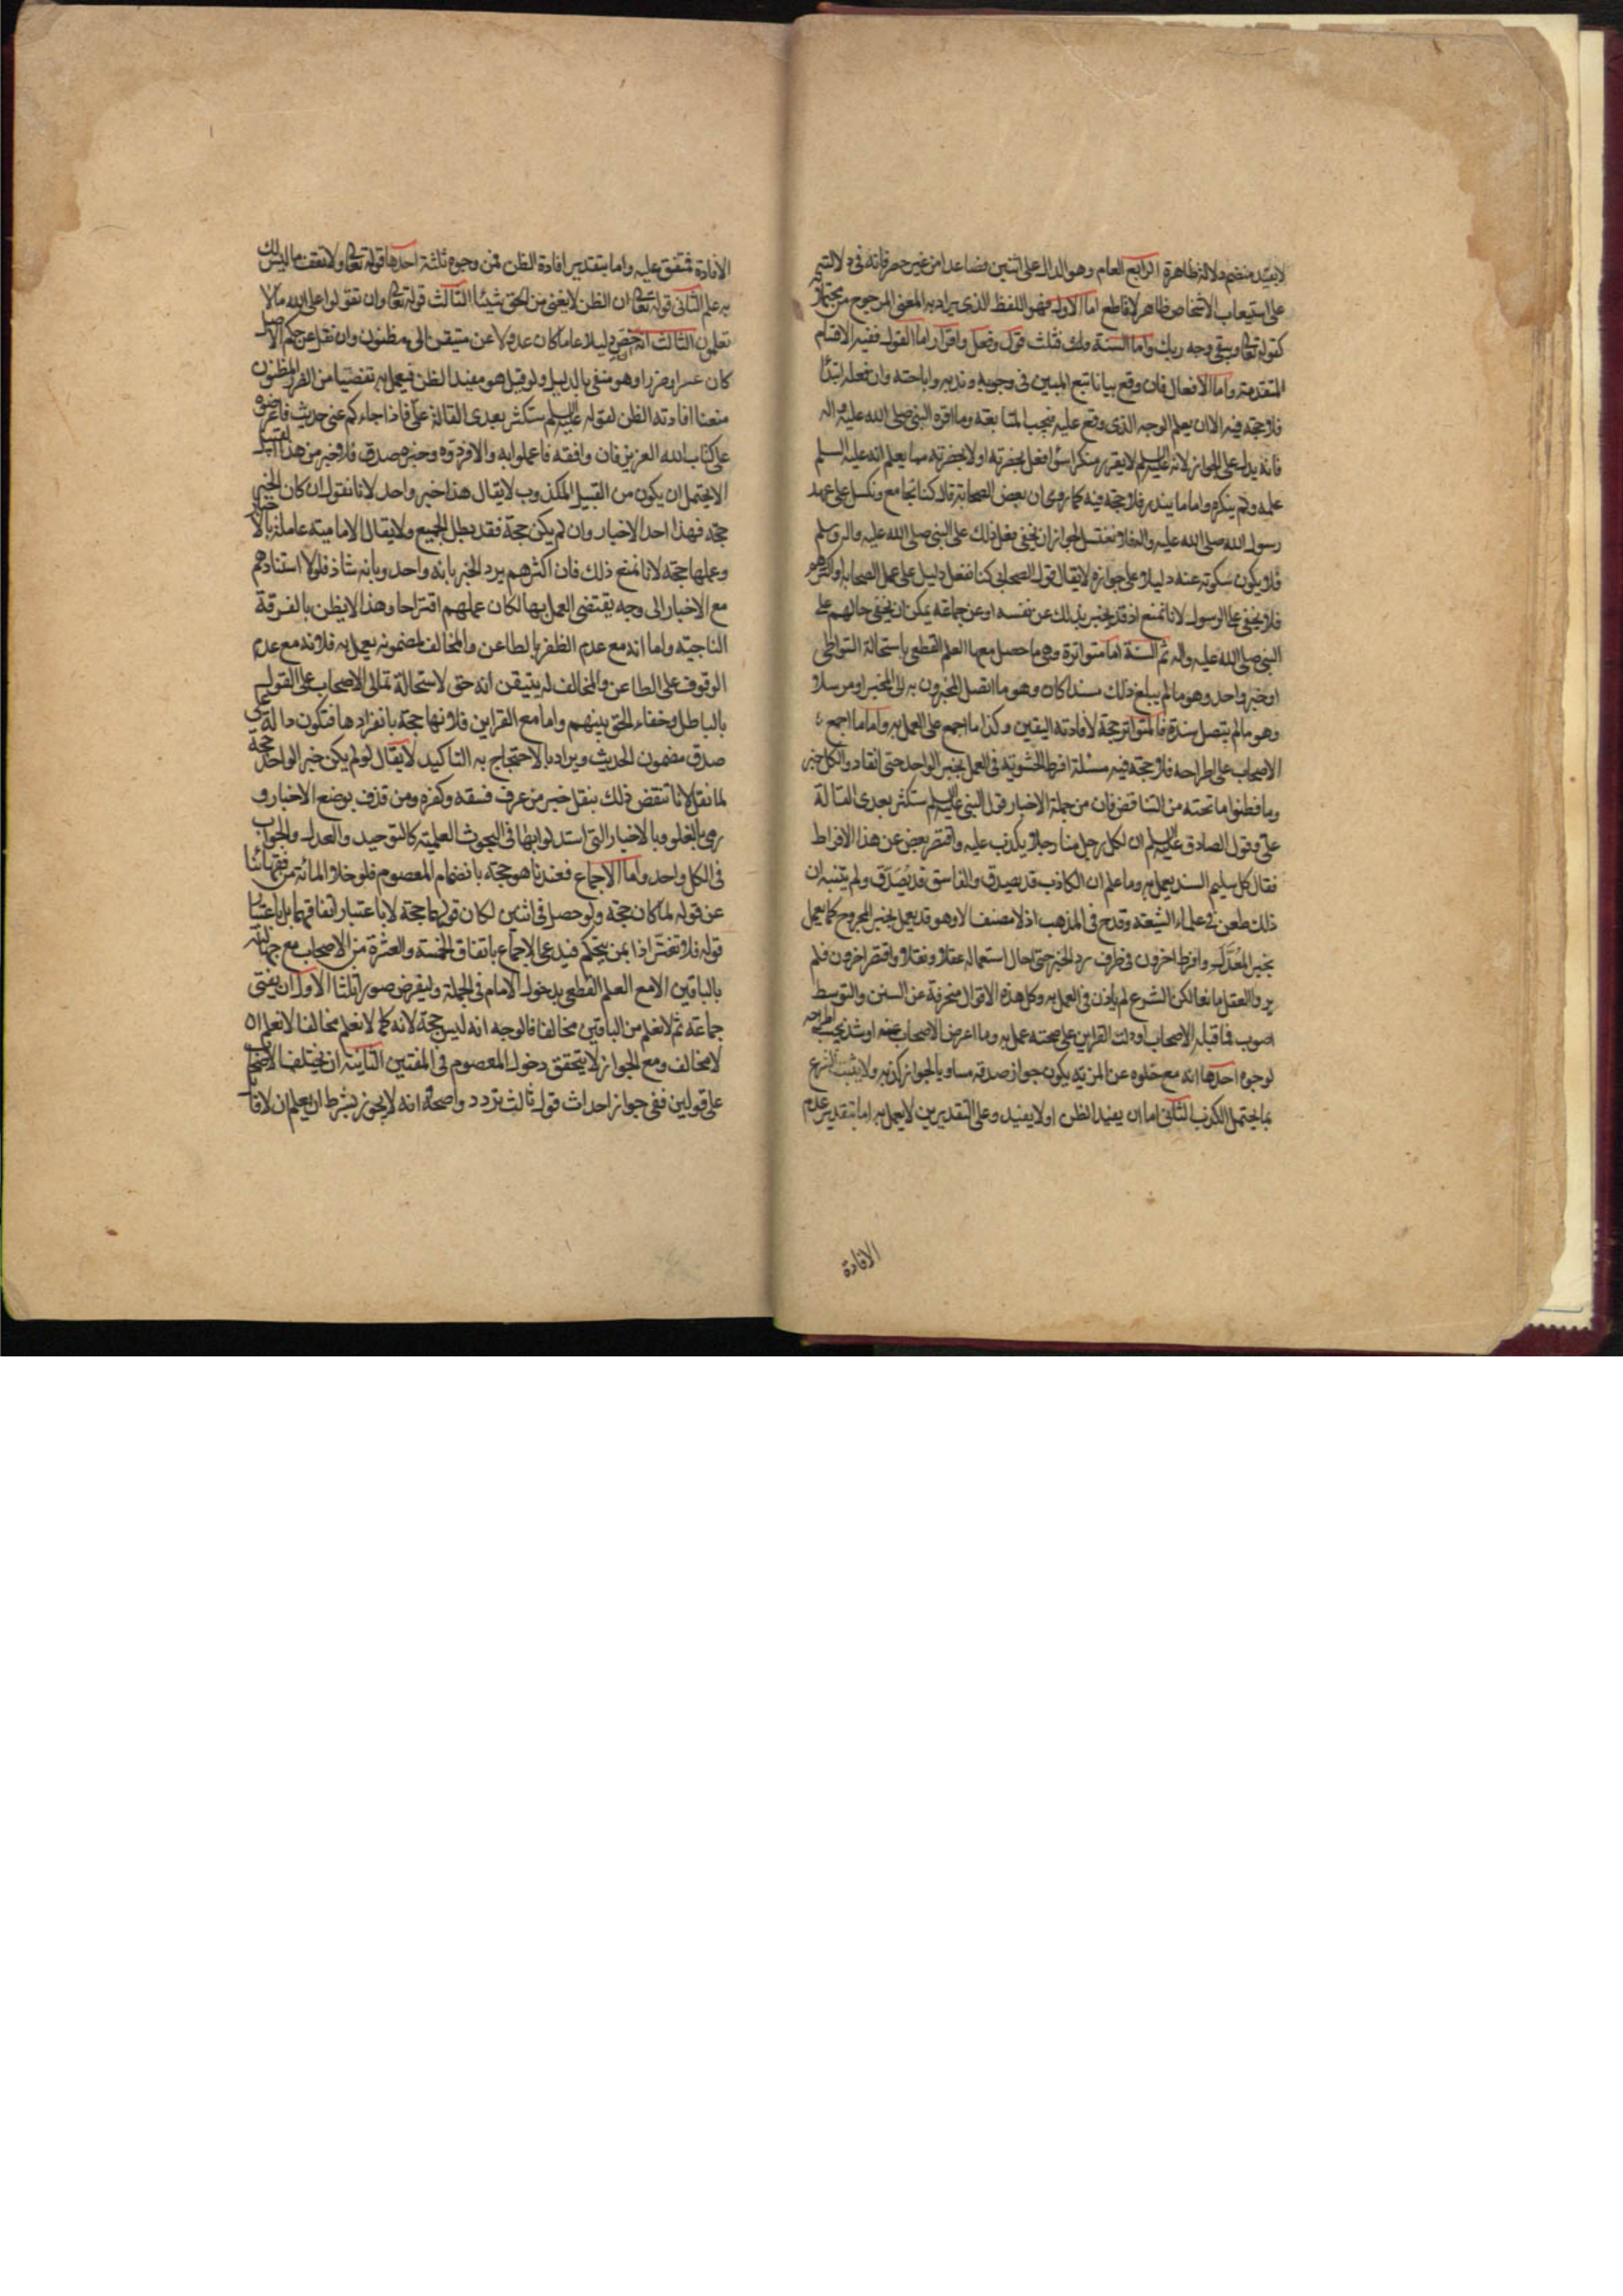 لا يفيد منضم دلالة ظاهرة الرابع العام وهو الدال على اثنين فصاعدا من غير حصر فانه في دلالته
على استيعاب الاشخاص ظاهر لا قاطع اما الاول فهو اللفظ الذي يراد به المعنى المرجوح من محتملاته
كقوله تعالى ويبقى وجه ربك واما السنة فثلث قول وفعل واقرار اما القول ففيه الاقسام
المتقدمة واما الافعال فان وقع بيانا تبع المبين في وجوبه وندبه واباحته وان فعله ابتداء
فلا حجة فيه الا ان يعلم الوجه الذي وقع عليه فيجب المتابعة وما اقره النبي صلى الله عليه واله
فانه يدل على الجواز لانه عليه السلم لا يقرر منكرا سواء فعل بحضرته او لا بحضرته مما يعلم انه عليه السلم
علمه ولم ينكره واما ما يندر فلا حجة فيه كما روى ان بعض الصحابة قال كنا نجامع ونكسل على عهد
رسول الله صلى الله عليه واله فلا نغتسل لجواز ان يخفى فعل ذلك على النبي صلى الله عليه واله وسلم
فلا يكون سكوته عنه دليلا على جوازه لا يقال قول الصحابي كنا نفعل دليل على عمل الصحابة او اكثرهم
فلا يخفى على الرسول لانا نمنع اذ قد يخبر بذلك عن نفسه او عن جماعة يمكن ان يخفى حالهم على
النبي صلى الله عليه واله ثم السنة اما متواترة وهي ما حصل معها العلم القطعي باستحالة التواطي
او خبر واحد وهو ما لم يبلغ ذلك مسندا كان وهو ما اتصل المخبرون به الى المخبر او مرسلا
وهو ما لم يتصل سنده فالمتواتر حجة لافادته اليقين وكذا ما اجمع على العمل به واما ما اجمع
الاصحاب على اطراحه فلا حجة فيه مسئلة افرط الحشوية في العمل بخبر الواحد حتى انقادوا لكل خبر
وما فطنوا ما تحته من التناقض فان من جملة الاخبار قول النبي عليه السلم ستكثر بعدي القالة
علي وقول الصادق عليه السلم ان لكل رجل منا رجلا يكذب عليه واقتصر بعض عن هذا الافراط
فقال كل سليم السند يعمل به وما علم ان الكاذب قد يصدق والفاسق قد يصدق ولم يتنبه ان
ذلك طعن في علماء الشيعة وقدح في المذهب اذ لا مصنف الا وهو قد يعمل بخبر المجروح كما يعمل
بخبر المعدل وافرط اخرون في طرف رد الخبر حتى احال استعماله عقلا ونقلا واقتصر اخرون فلم
يروا العقل مانعا لكن الشرع لم ياذن في العمل به وكل هذه الاقوال منحرفة عن السنن والتوسط
اصوب فما قبله الاصحاب او دلت القراين على صحته عمل به وما اعرض الاصحاب عنه او شذ يجب اطراحه
لوجوه احدها انه مع خلوه عن المزية يكون جواز صدقه مساويا لجواز كذبه ولا يثبت الشرع
بما يحتمل الكذب الثاني اما ان يفيد الظن او لا يفيد وعلى التقديرين لا يعمل به اما بتقدير عدم
الافادة
الافادة فمتفق عليه واما بتقدير افادة الظن فمن وجوه ثلثة احدها قوله تعالى ولا تقف ما ليس لك
به علم الثاني قوله تعالى ان الظن لا يغني من الحق شيئا الثالث قوله تعالى وان تقولوا على الله ما لا
تعلمون الثالث انه ان خص دليلا عاما كان عدولا عن متيقن الى مظنون وان نقل عن حكم الاصل
كان عسرا وضررا وهو منفي بالدليل ولو قيل هو مفيد الظن فيعمل به تفصيا من الضرر المظنون
منعنا افادته الظن لقوله عليه السلم ستكثر بعدي القالة علي فاذا جاءكم عني حديث فاعرضوه
على كتاب الله العزيز فان وافقه فاعملوا به والا فردوه وخبره صدق فلا خبر من هذا القبيل
الا يحتمل ان يكون من القبيل المكذوب لا يقال هذا خبر واحد لانا نقول ان كان الخبر
حجة فهذا احد الاخبار وان لم يكن حجة فقد بطل الجميع ولا يقال الامامية عاملة بالاخبار
وعملها حجة لانا نمنع ذلك فان اكثرهم يرد الخبر بانه واحد وبانه شاذ فلولا استنادهم
مع الاخبار الى وجه يقتضي العمل بها لكان عملهم اقتراحا وهذا لا يظن بالفرقة
الناجية واما انه مع عدم الظفر بالطاعن والمخالف لمضمونه يعمل به فلانه مع عدم
الوقوف على الطاعن والمخالف له يتيقن انه حق لاستحالة تمالي الاصحاب على القول
بالباطل وخفاء الحق بينهم واما مع القراين فلانها حجة بانفرادها فتكون دالة على
صدق مضمون الحديث ويراد بالاحتجاج به التاكيد لا يقال لو لم يكن خبر الواحد حجة
لما نقل لانا ننقض ذلك بنقل خبر من عرف فسقه وكفره ومن قذف بوضع الاخبار و
رمى بالغلو وبالاخبار التي استدلوا بها في البحوث العلمية كالتوحيد والعدل والجواب
في الكل واحد واما الاجماع فعندنا هو حجة بانضمام المعصوم فلو خلا المائة من فقهائنا
عن قوله لما كان حجة ولو حصل في اثنين لكان قولهما حجة لا باعتبار اتفاقهما بل باعتبار
قوله فلا تغتر اذا بمن يتحكم فيدعي الاجماع باتفاق الخمسة والعشرة من الاصحاب مع جهالته
بالباقين الا مع العلم القطعي بدخول الامام في الجملة ولنفرض صورا ثلثا الاول ان يفتي
جماعة ثم لا نعلم من الباقين مخالفا فالوجه انه ليس حجة لانه كما لا نعلم مخالفا لا نعلم ان
لا مخالف ومع الجواز لا يتحقق دخول المعصوم في المفتين الثانية ان يختلف الاصحاب
على قولين ففي جواز احداث قول ثالث تردد واصحه انه لا يجوز بشرط ان يعلم ان لا قائل